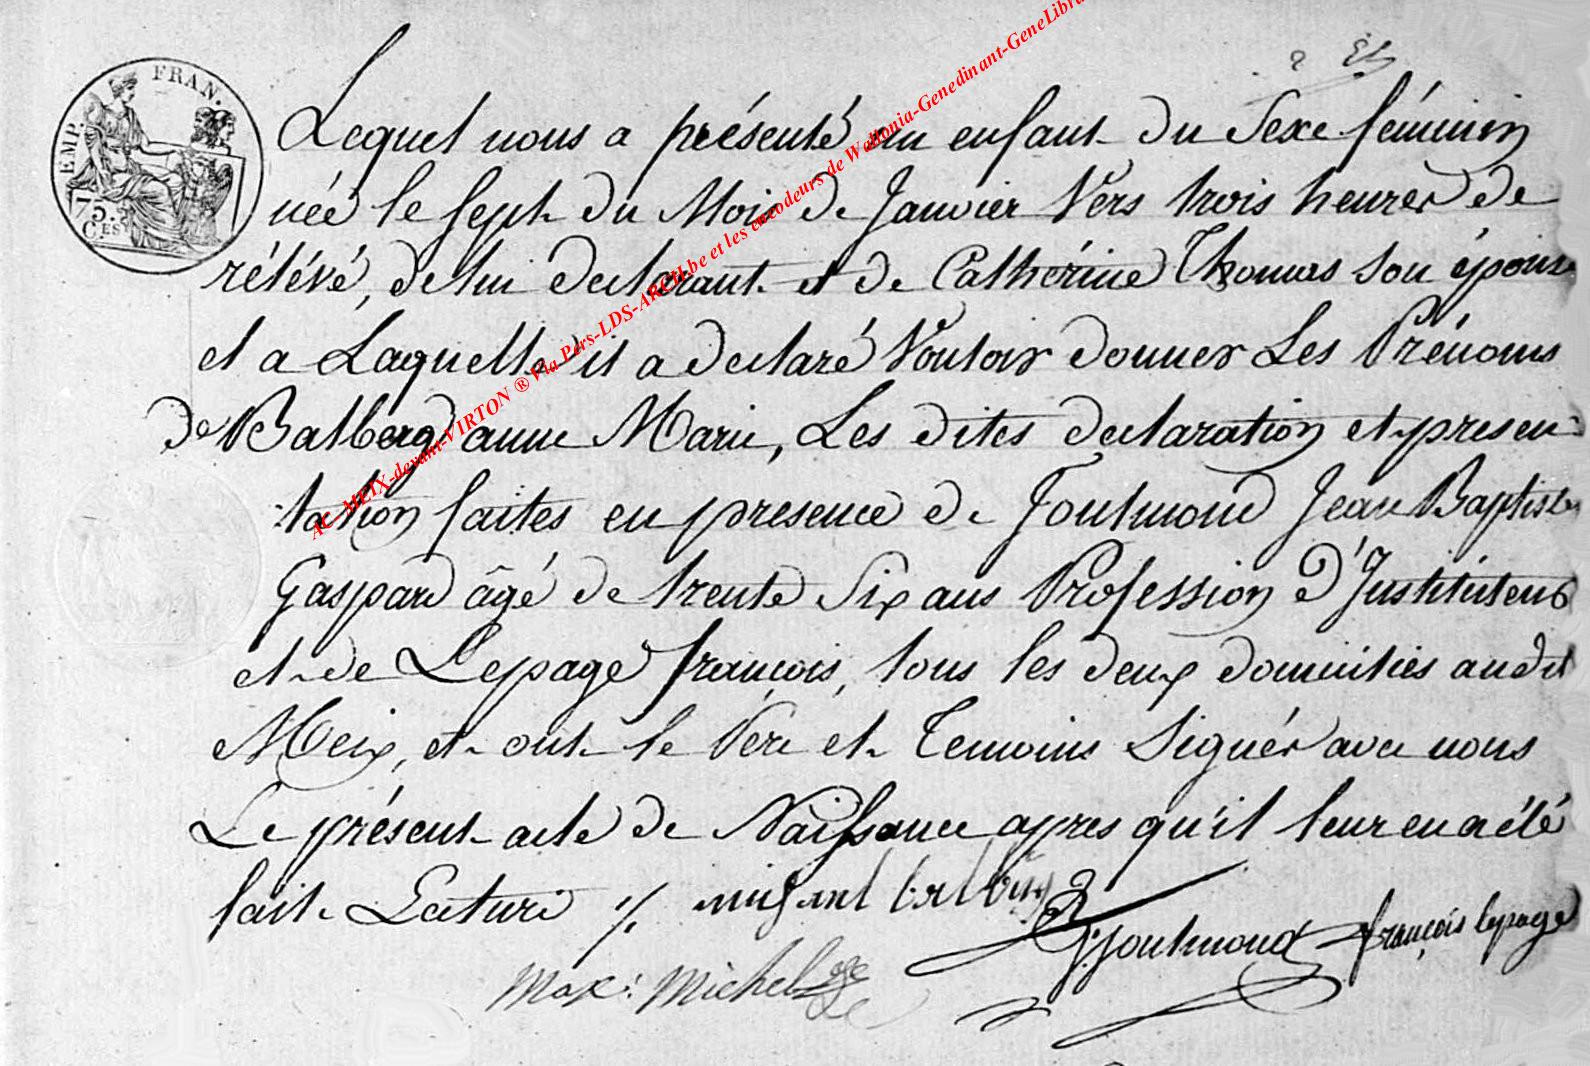 EMP. FRAN.
75. C.ES
Lequel nous a présenté un enfant du Sexe féminin
née le sept du Mois de Janvier Vers trois heures de
rélévé, de lui declarant et de Cathérine Thomas son épouse
et a Laquelle il a declaré Vouloir donner Les Prénoms
de Balberg anne Marie, Les dites declaration et presen
tation faites en presence de Foulmond Jean Baptiste
Gaspard âgé de trente Six ans Profession d'Instituteur
et de Lepage françois, tous les deux domiciliés au dit
Meix, et ont le Père et Temoins Signés avec nous
Le présent acte de Naissance apres qu'il leur en a été
fait Lecture
J: foulmond françois lepage
Max: Michel
AC-MEIX-devant-VIRTON ® Via Pers-LDS-ARCH.be et les encodeurs de Wallonia-Genedinant-GeneLibra